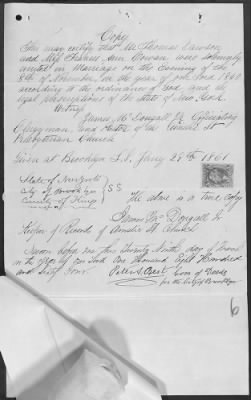 Copy
This may certify that Mr Thomas Dawson
and Miss Frances Ann Cowan were solemnly
united in Marriage on the Evening of the
8th of November in the year of our Lord 1860
according to the ordinance of God, and the
legal prescriptions of the state of New York
James McDougall Jr Officiating
Clergyman, and Pastor of the St
Presbyterian Church
Given at Brooklyn L.I. Jany 29th 1861
State of New York
City of Brooklyn } S S
County of Kings
The above is a true copy
James McDougall Jr
Keeper of Records of St Church
Sworn before me this twenty ninth day of
in the year of our Lord One thousand Eight Hundred
and Sixty Four
Com of Deeds
for the City of Brooklyn
6